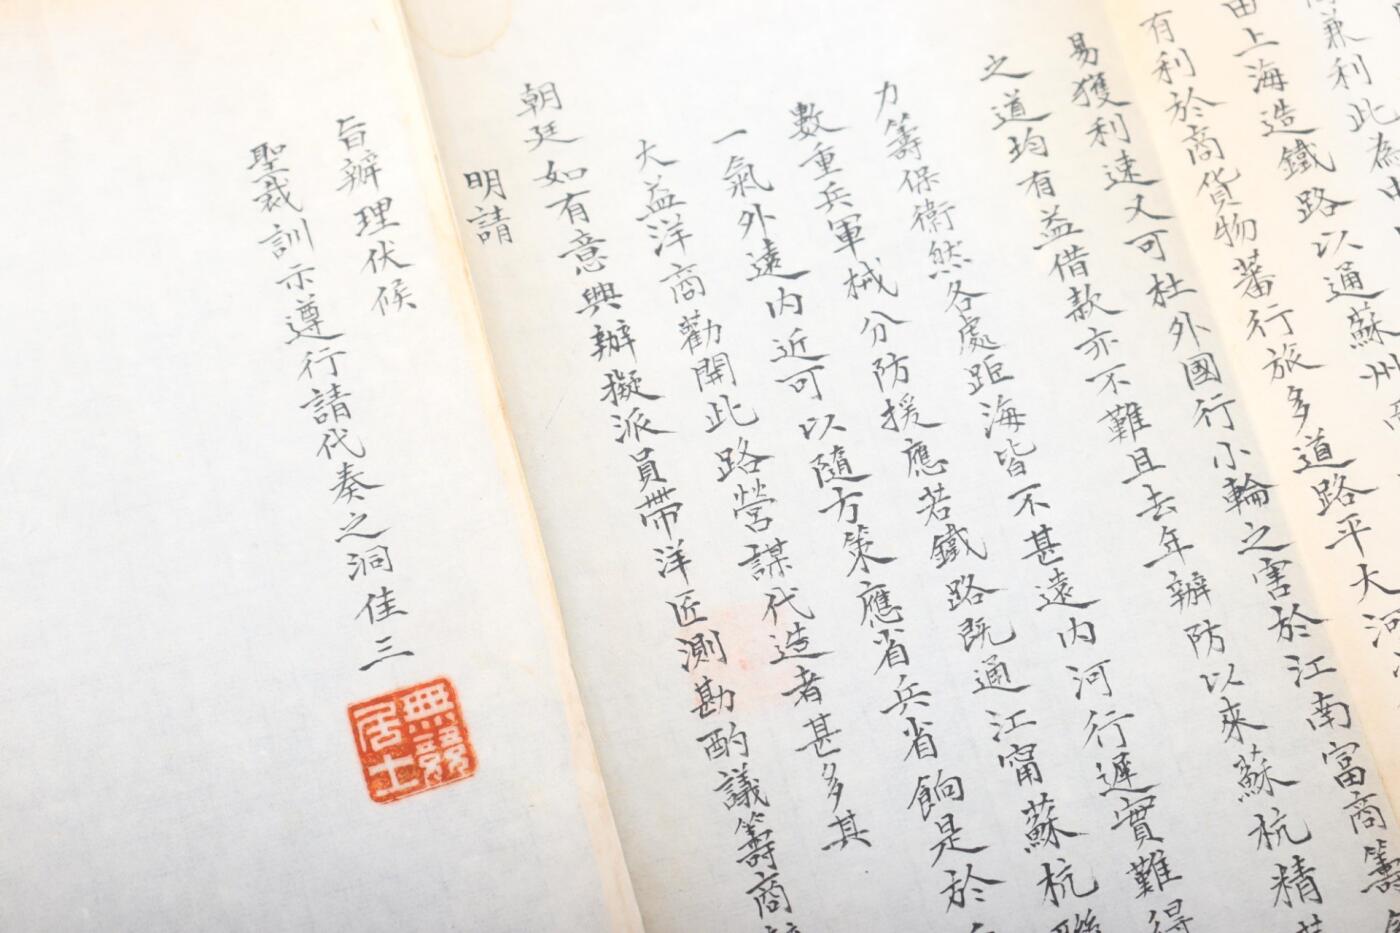 兼利此為
上海造鐵路以通蘇州
有利於商貨物蕃行旅多道路平大河
易獲利速又可杜外國行小輪之害於江南富商籌
之道均有益借款亦不難且去年辦防以來蘇杭精
力籌保衛然各處距海皆不甚遠內河行遲實難得
數重兵軍械分防援應若鐵路既通江甯蘇杭聯
一氣外遠內近可以隨方策應省兵省餉是於
大益洋商勸開此路營謀代造者甚多其
朝廷如有意興辦擬派員帶洋匠測勘酌議籌商
明請
旨辦理伏候
聖裁訓示遵行請代奏之洞佳三
無競居士